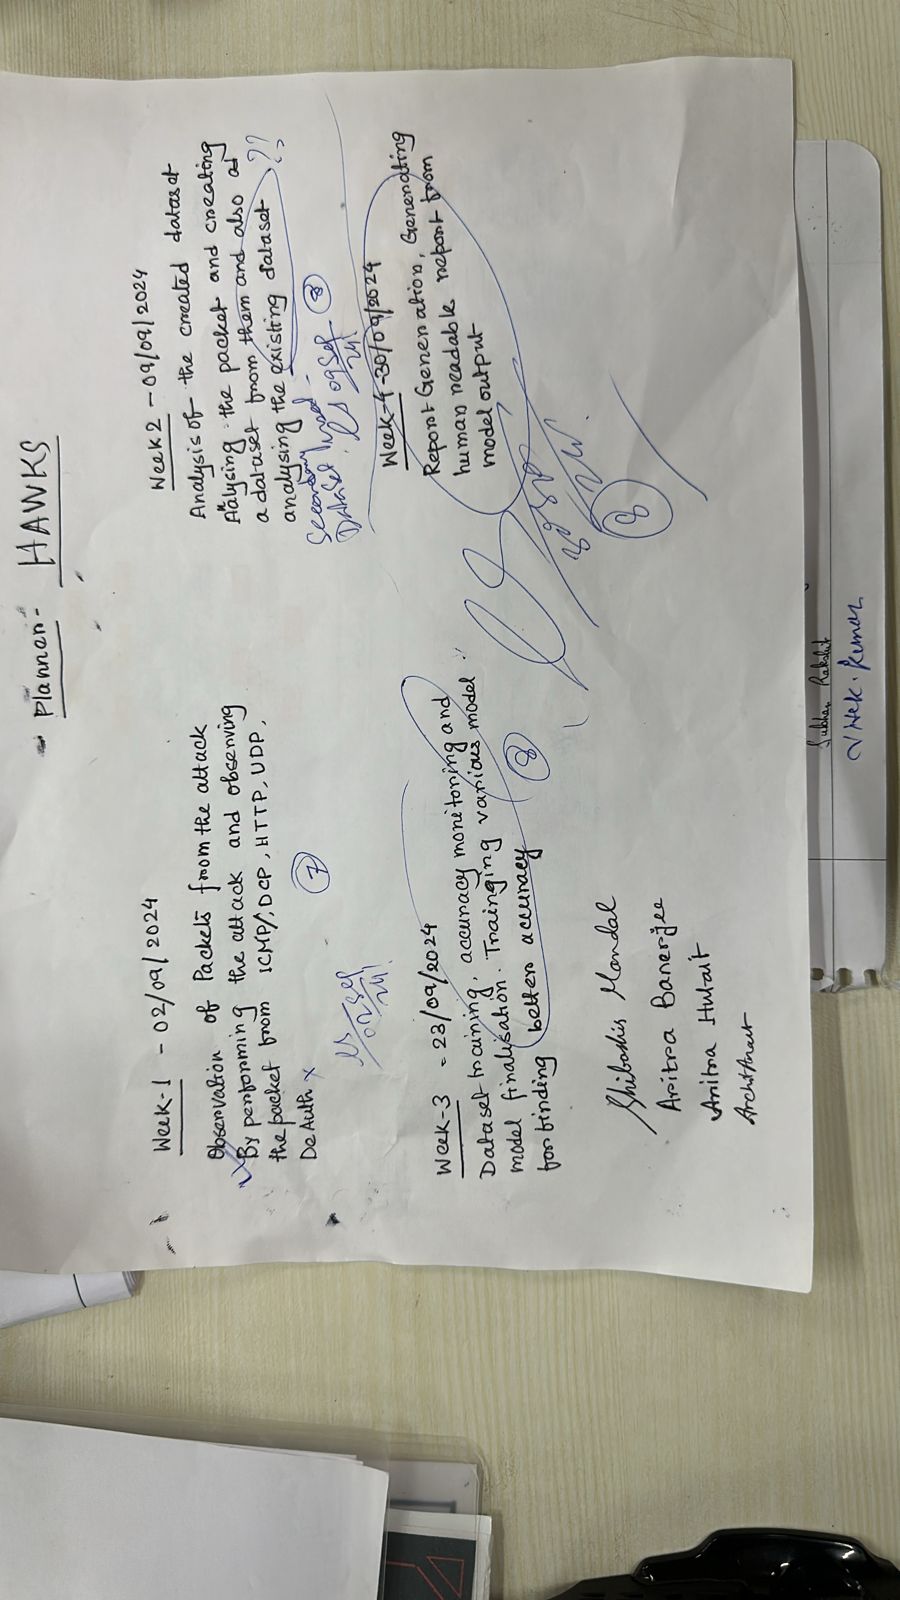 Planner - HAWKS
Week-1 - 02/09/2024
Observation of Packets from the attack
By performing the attack and observing
the packet from ICMP, DCP, HTTP, UDP,
DeAuth x
7
02 Sep
24
Week 2 - 09/09/2024
Analysis of the created dataset
Analysing the packet and creating
a dataset from them and also
analysing the existing dataset ??
Secondary
Dataset 09 Sep 8
24
Week-3 - 23/09/2024
Dataset training, accuracy monitoring and
model finalisation. Trainging various model
for finding better accuracy
8
Week-4 - 30/09/2024
Report Generation, Generating
human readable report from
model output
8
Shibashis Mandal
Aritra Banerjee
Aritra Hutait
Subhan Rakshit
Vivek Kumar